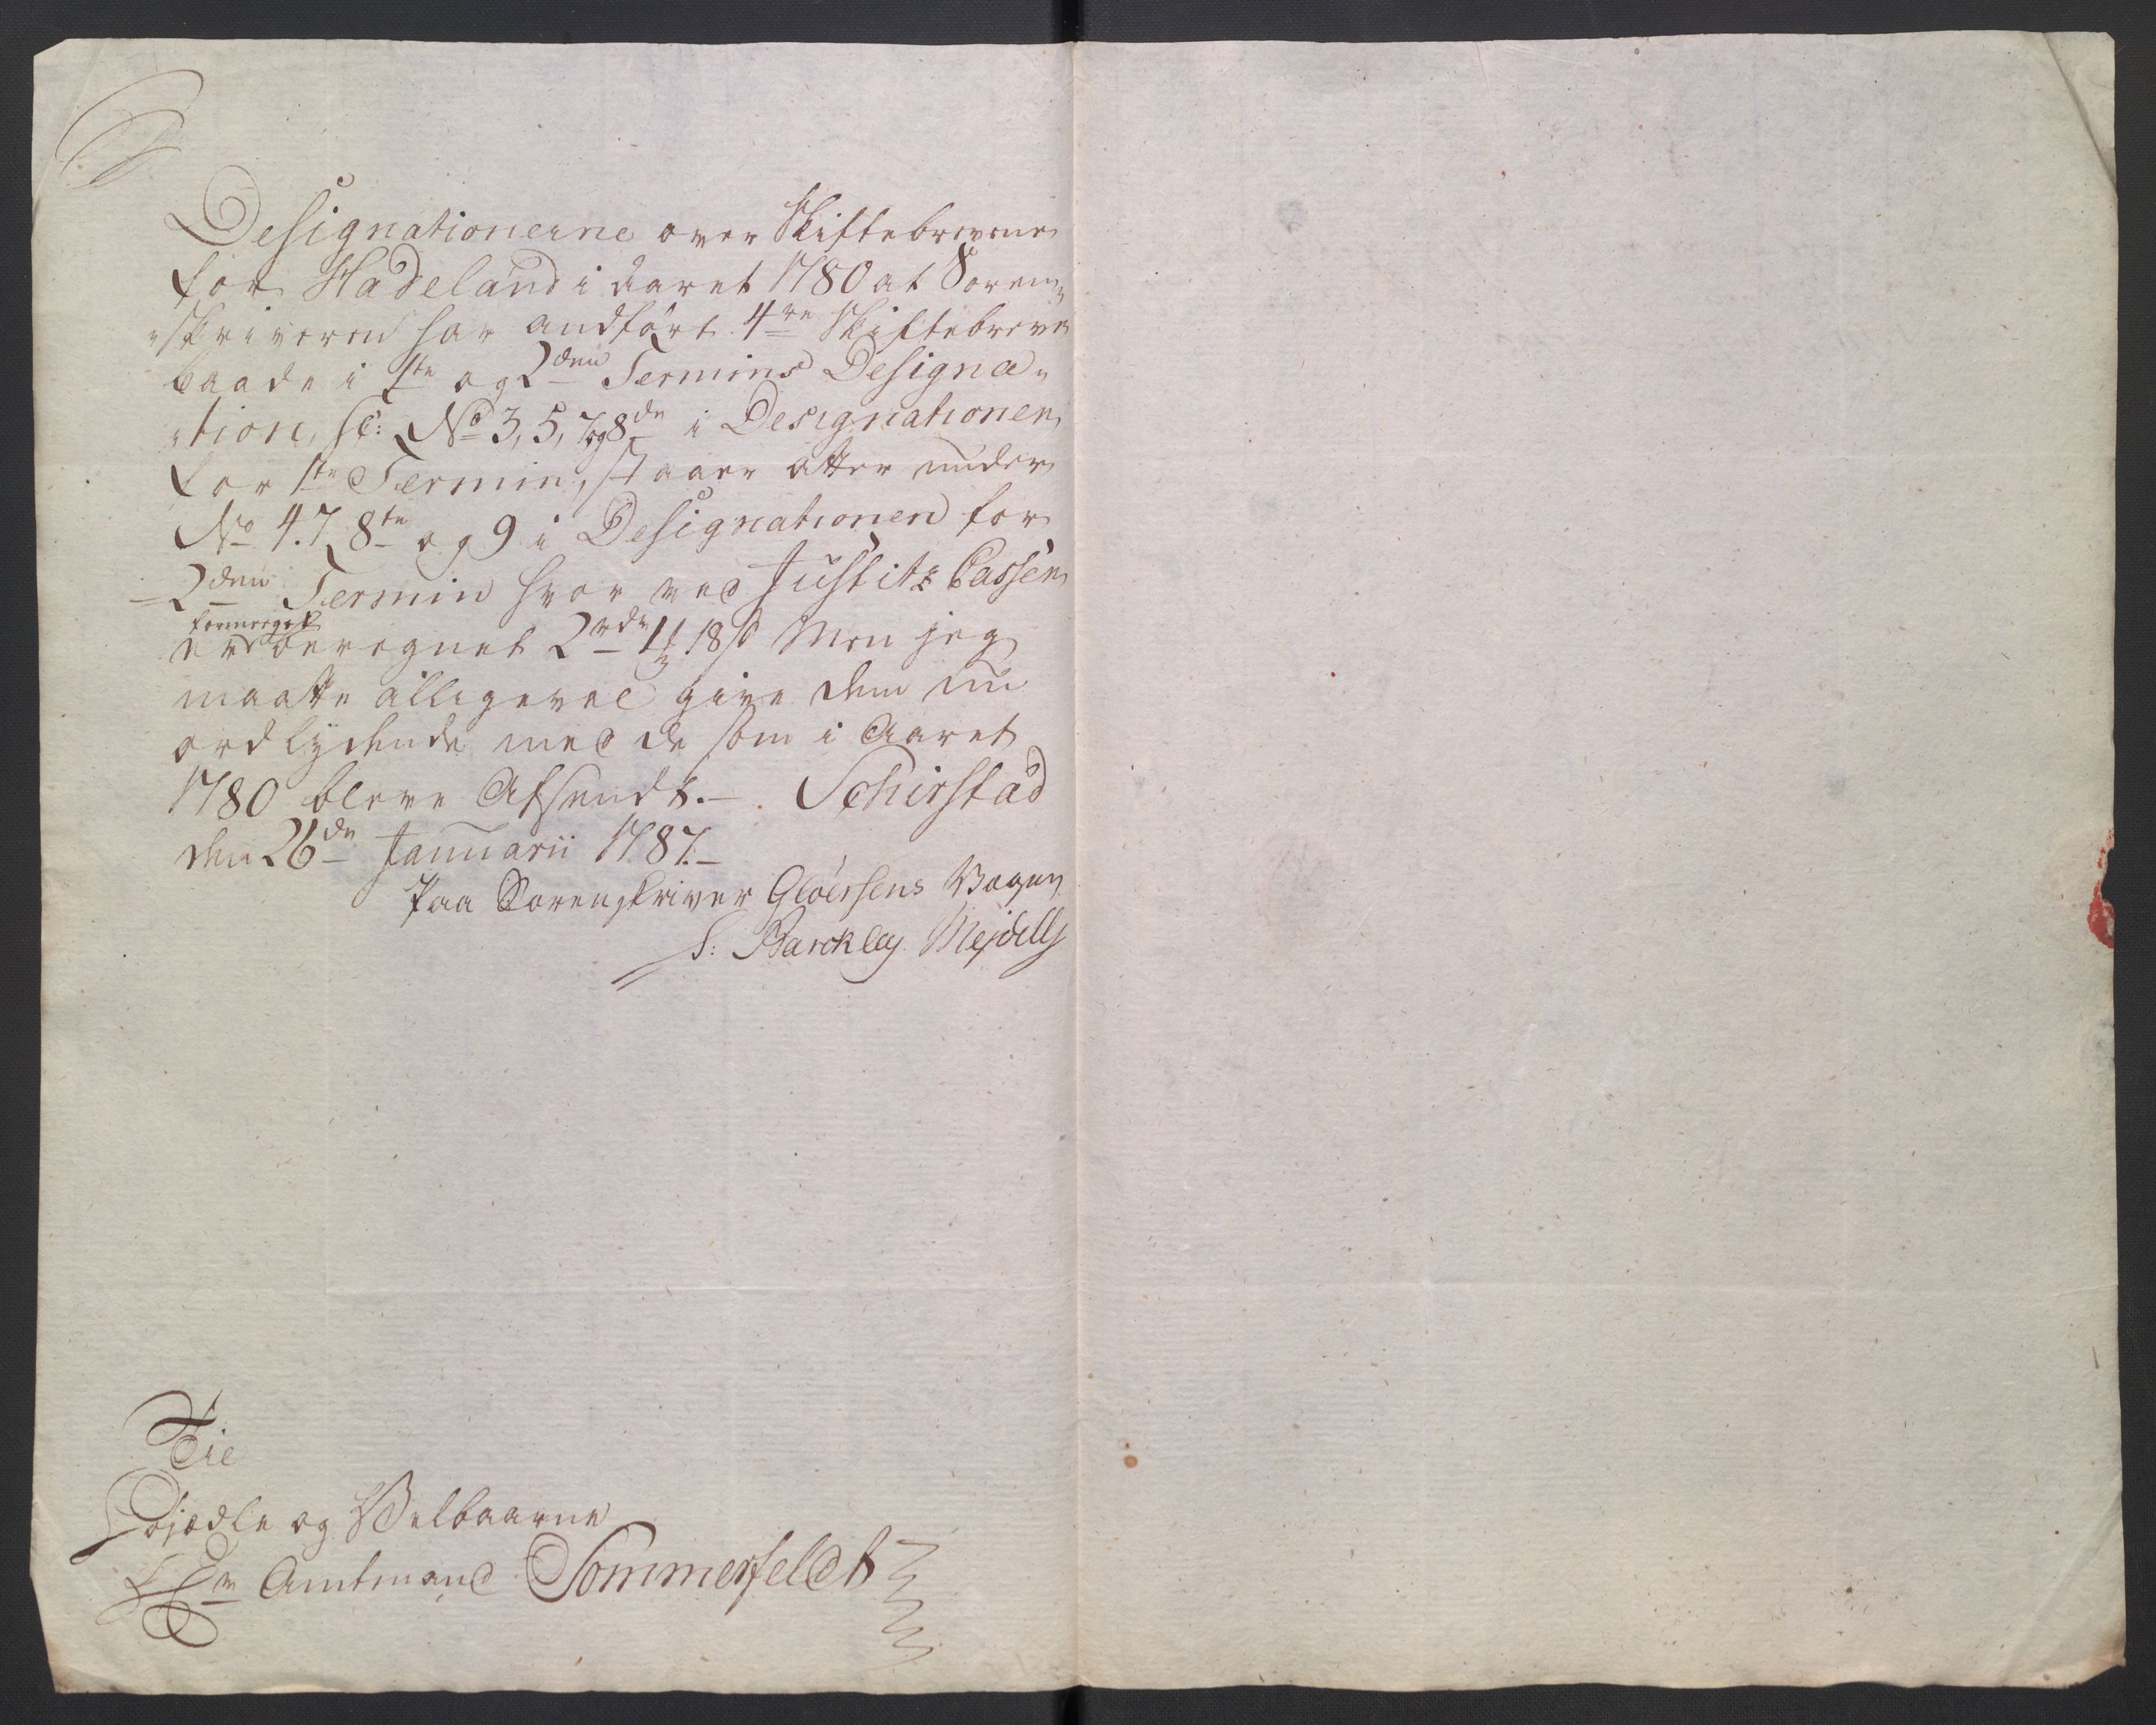 Designationerne over Skiftebrevene
for Hadeland i Aaret 1780 at Soren-
-skriveren har andført 4re Skiftebreve
baade i 1te og 2den Termins Designa-
-tion, sc: No 3, 5, 7 og 8de i Designationen
for 1te Termin, staaer atter under
No 4. 7. 8te og 9 i Designationen for
2den Termin hvor ved Justitz Cassen
er formeget beregnet 2 rdr 18 s Men jeg
maatte alligevel give dem nu
ordlydende med de som i Aaret
1780 bleve Afsendt. – Schirstad
den 26de Januarii 1787. –
Paa Sorenskriver Gløersens Vegne
S: Barckley Mejdell
Til
Højædle og Velbaarne
Hr Amtmand Sommerfeldt